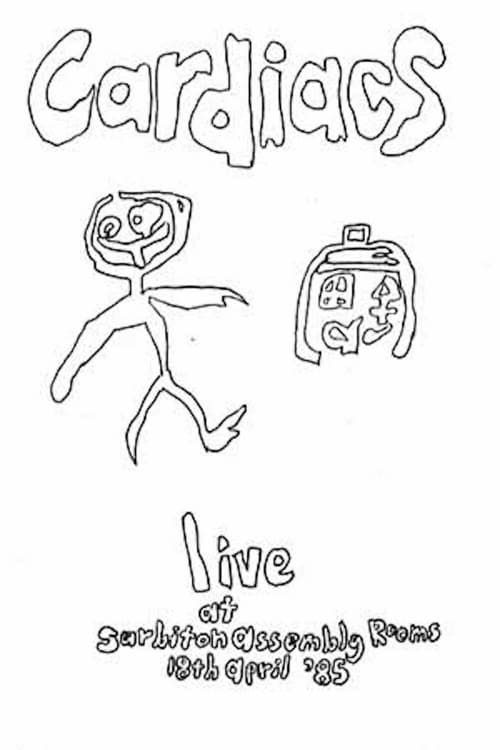 Cardiacs
live
at
Surbiton assembly Rooms
18th april '85